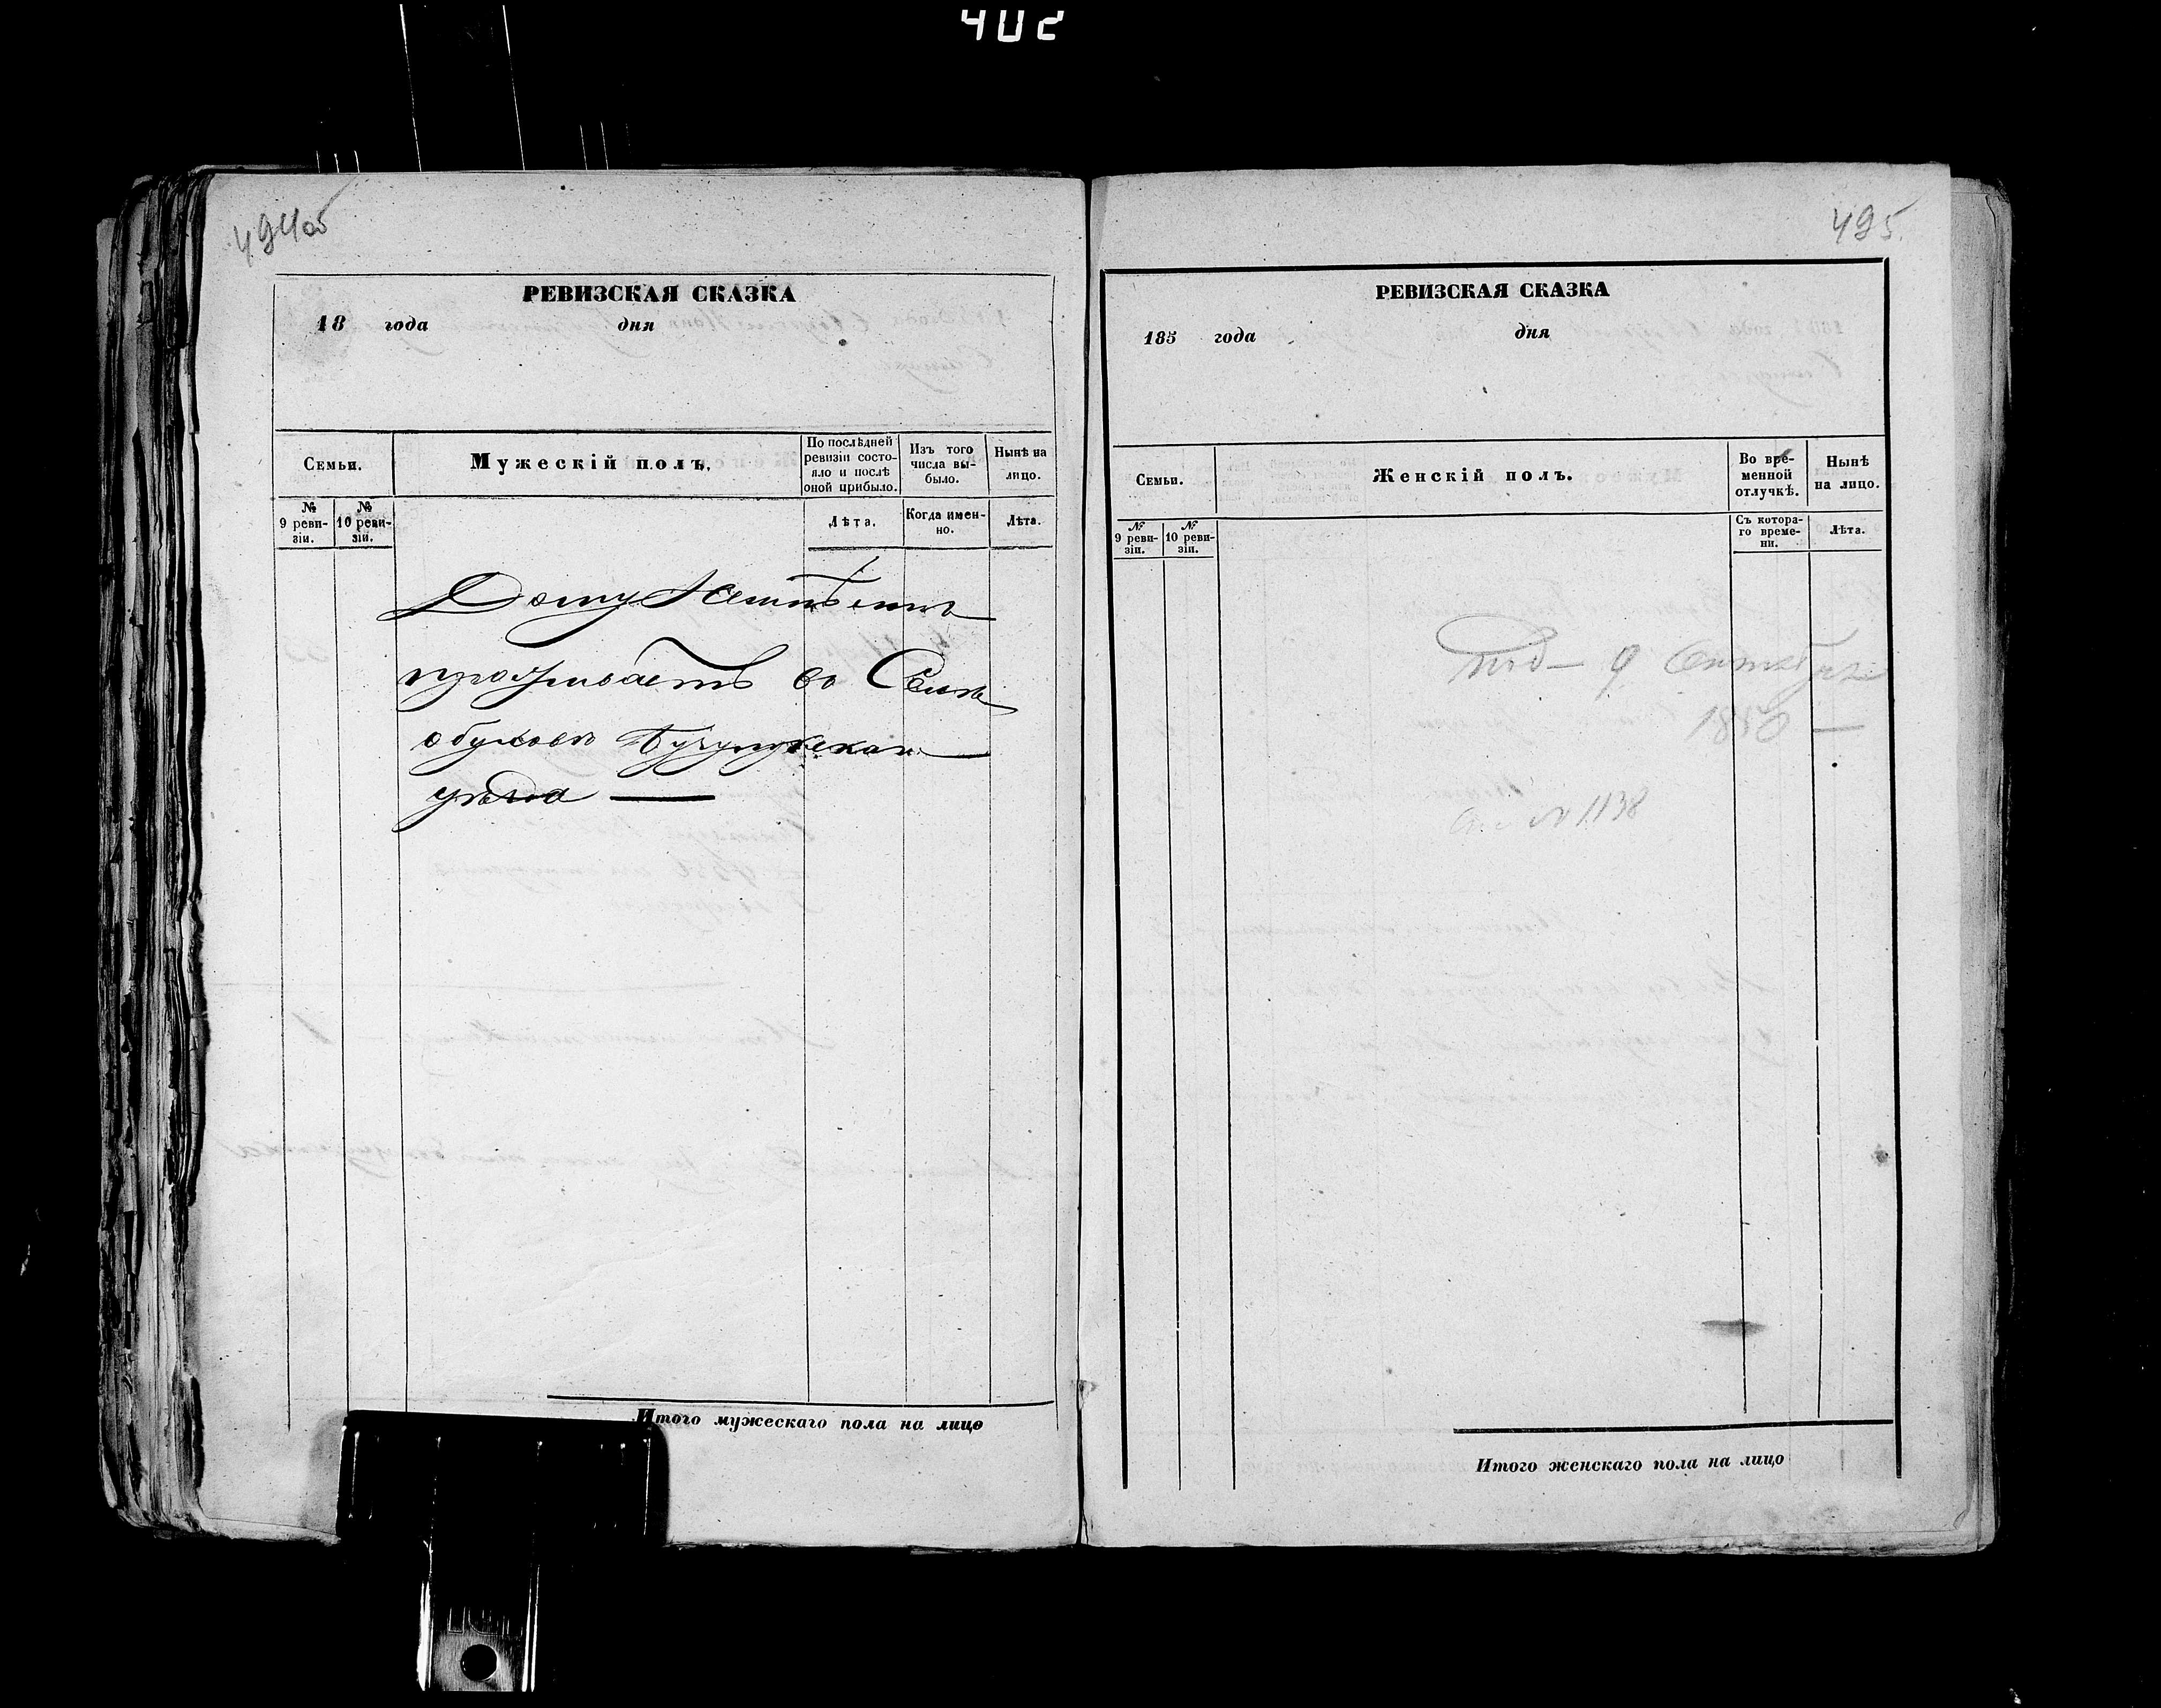 402
494об
РЕВИЗСКАЯ СКАЗКА
18 года дня
Семьи.
Мужескій полъ.
По послѣдней ревизіи состояло и послѣ оной прибыло.
Изъ того числа выбыло.
Нынѣ на лицо.
№ 9 ревизіи.
№ 10 ревизіи.
Лѣта.
Когда именно.
Лѣта.
Дому Неимѣетъ
проживаетъ въ Селѣ
обуховѣ Бузулукскаго
уѣзда
Итого мужескаго пола на лицо
495.
РЕВИЗСКАЯ СКАЗКА
185 года дня
Семьи.
Женскій полъ.
Во временной отлучкѣ.
Нынѣ на лицо.
№ 9 ревизіи.
№ 10 ревизіи.
Съ котораго времени.
Лѣта.
под 9 Сентября
1850
№ 1138
Итого женскаго пола на лицо